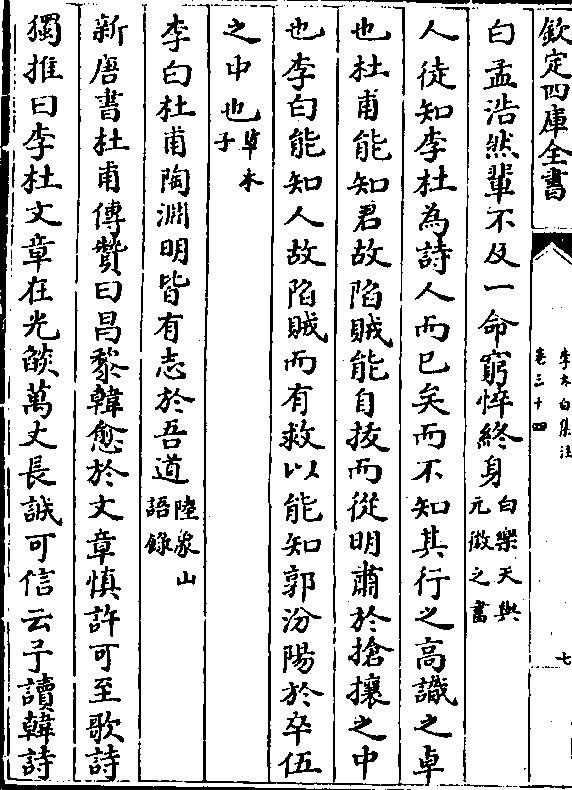 欽定四庫全書
李太白集注
卷三十四
七
白孟浩然輩不及一命窮悴終身白樂天與元微之書
人徒知李杜為詩人而已矣而不知其行之高識之卓
也杜甫能知君故陷賊能自拔而從明肅於搶攘之中
也李白能知人故陷賊而有救以能知郭汾陽於卒伍
之中也草木子
李白杜甫陶淵明皆有志於吾道陸象山語錄
新唐書杜甫傳贊曰昌黎韓愈於文章慎許可至歌詩
獨推曰李杜文章在光燄萬丈長誠可信云予讀韓詩